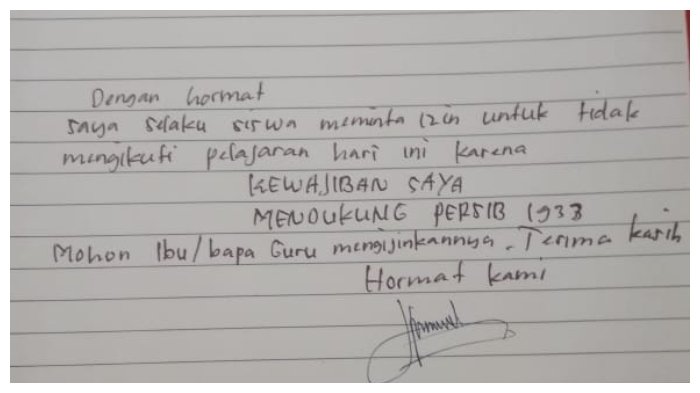 Dengan hormat
saya selaku siswa meminta izin untuk tidak
mengikuti pelajaran hari ini karena
KEWAJIBAN SAYA
MENDUKUNG PERSIB 1933
Mohon Ibu/bapa Guru mengijinkannya. Terima kasih
Hormat kami